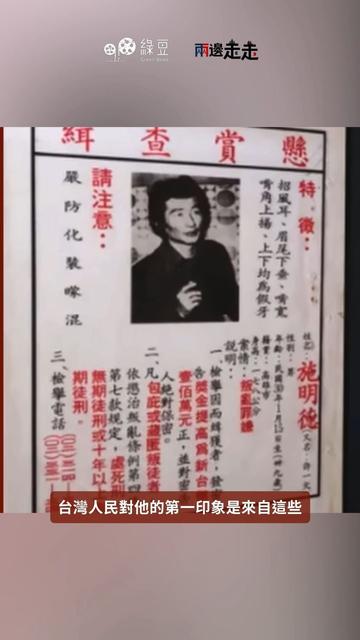 綠豆
兩邊走走
懸賞查緝
特徵：
招風耳、眉尾下垂、嘴寬
嘴角上揚、上下均為假牙
請注意：
嚴防化裝矇混
姓名：施明德（又名：許一文
性別：男
年齡：民國30年1月15日生（卅九歲）
籍貫：高雄市
身高：一七八公分
案情：叛亂罪嫌
說明：
一、檢舉因而緝獲者，發
告獎金提高為新台
壹佰萬元正，並對密
人絕對保密。
二、凡包庇或藏匿叛徒者
依懲治叛亂條例第四
第七款規定，處死刑
無期徒刑或十年以上
期徒刑。
三、檢舉電話
台灣人民對他的第一印象是來自這些